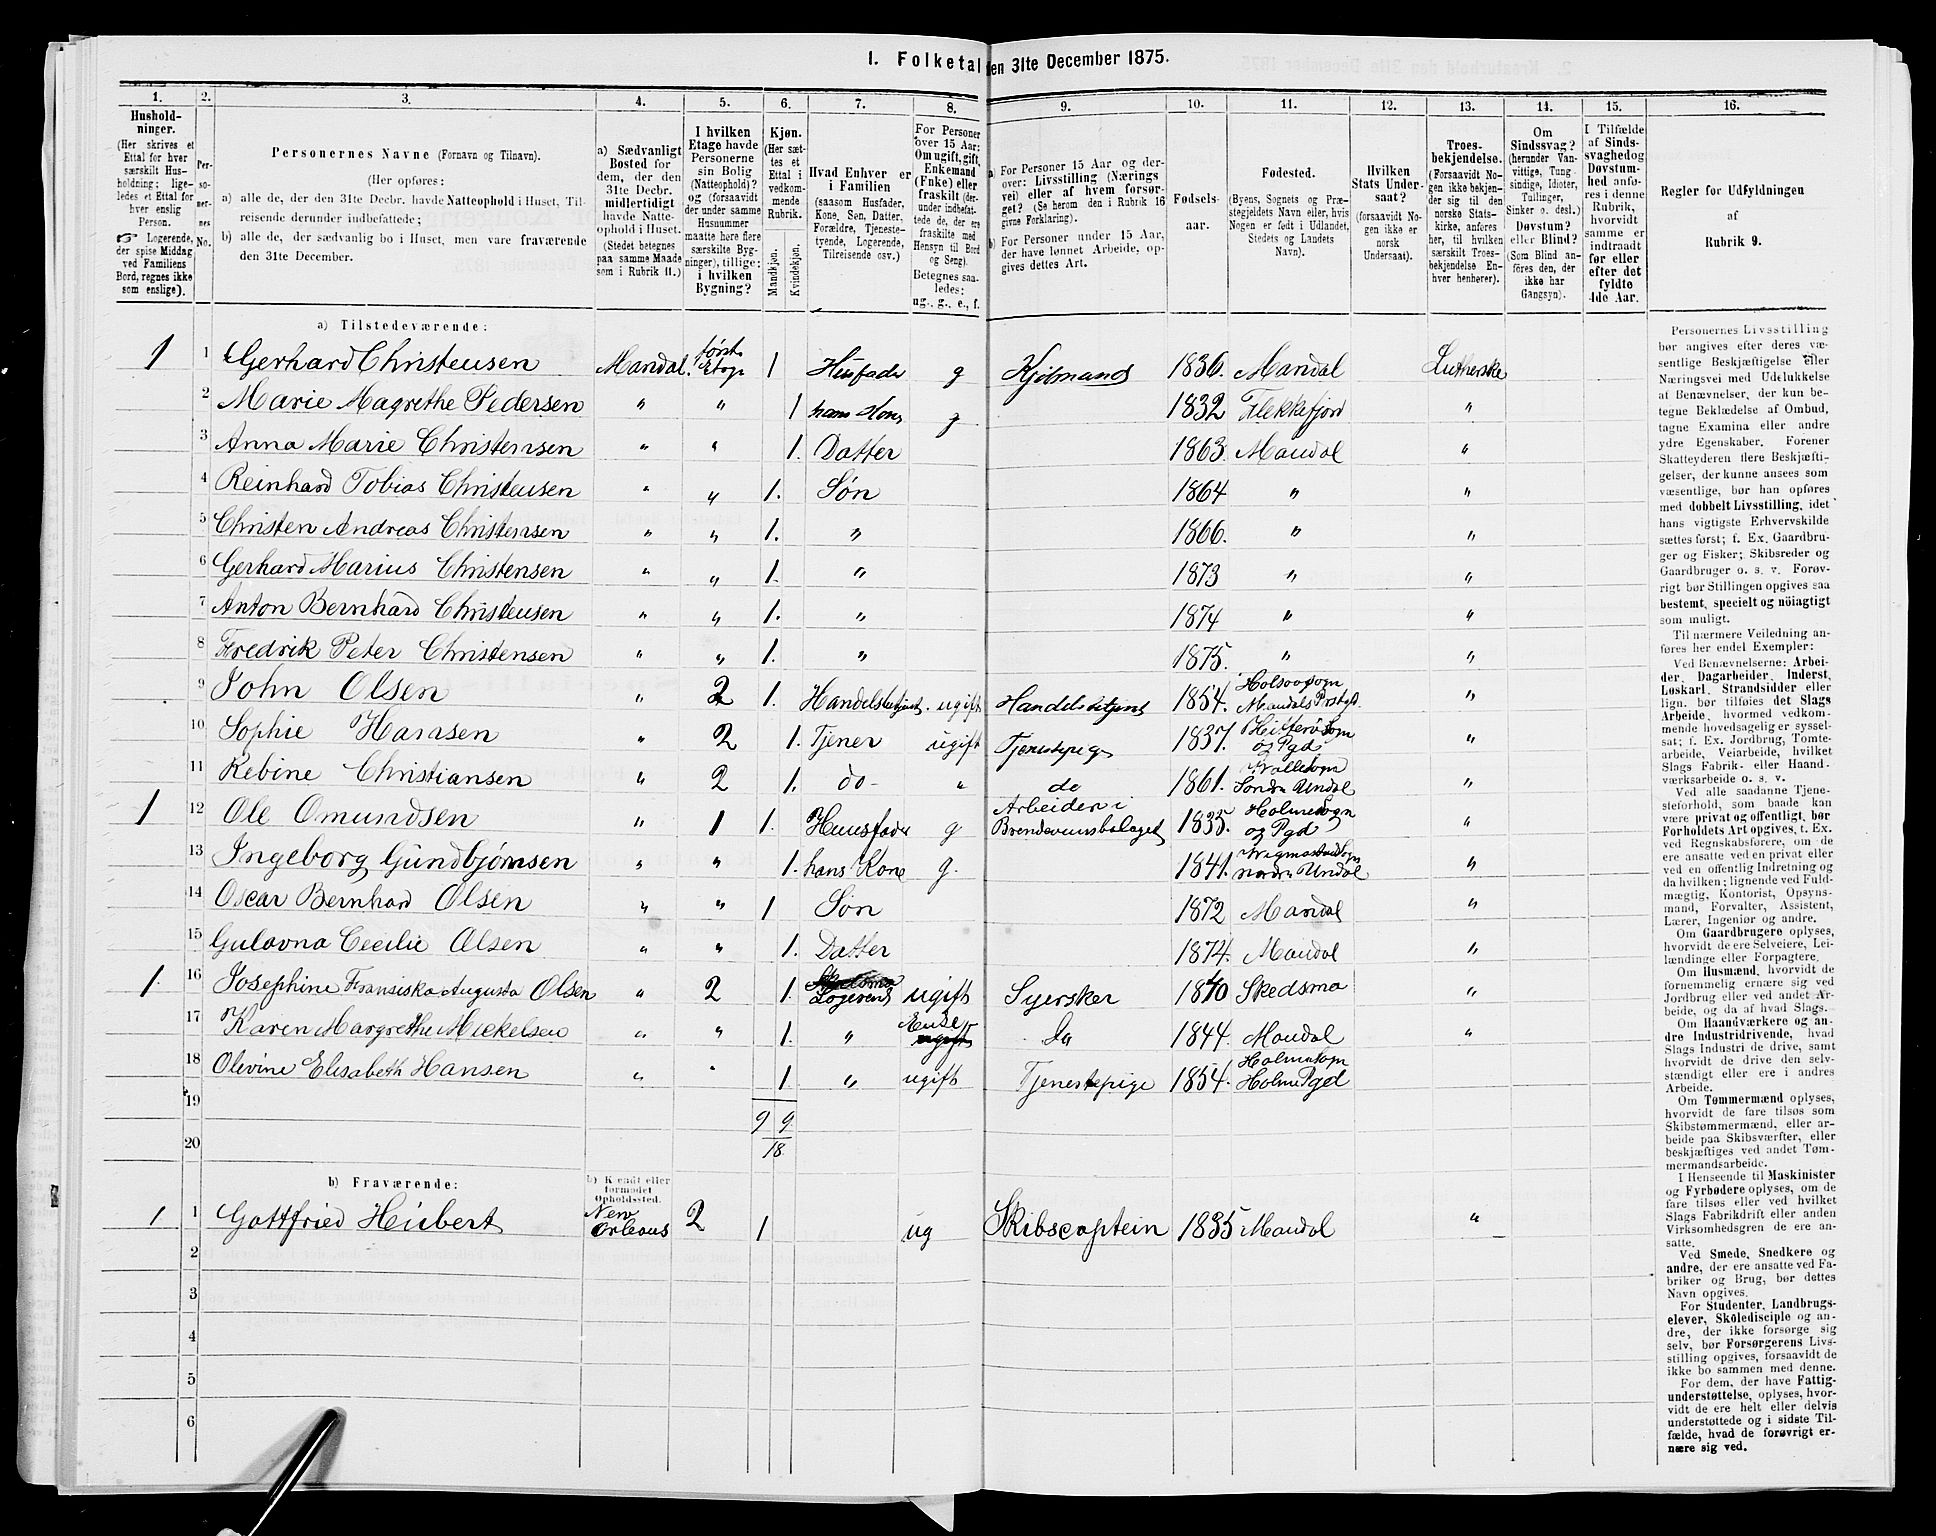 1. Folketal den 31te December 1875.
1. 2. 3. 4. 5. 6. 7. 8. 9. 10. 11. 12. 13. 14. 15. 16.
Hushold-
ninger.
(Her skrives et
Ettal for hver
særskilt Hus-
holdning; lige-
ledes et Ettal for
hver enslig
Person.
☞ Logerende,
der spise Middag
ved Familiens
Bord, regnes ikke
som enslige).
Per-
so-
ner-
nes
No.
Personernes Navne (Fornavn og Tilnavn).
(Her opføres:
a) alle de, der den 31te Decbr. havde Natteophold i Huset, Til-
reisende derunder indbefattede;
b) alle de, der sædvanlig bo i Huset, men vare fraværende
den 31te December.
a) Sædvanligt
Bosted for
dem, der den
31te Decbr.
midlertidigt
havde Natte-
ophold i Huset.
(Stedet betegnes
paa samme Maade
som i Rubrik 11.)
I hvilken
Etage havde
Personerne
sin Bolig
(Natteophold)?
og (forsaavidt
der under samme
Husnummer
maatte høre flere
særskilte Byg-
ninger), tillige:
i hvilken
Bygning?
Kjøn.
(Her sæt-
tes et
Ettal i
vedkom-
mende
Rubrik.
Mandkjøn.
Kvindekjøn.
Hvad Enhver er
i Familien
(saasom Husfader,
Kone, Søn, Datter,
Forældre, Tjeneste-
tyende, Logerende,
Tilreisende osv.)
For Personer
over 15 Aar:
Om ugift, gift,
Enkemand
(Enke) eller
fraskilt (der-
under indbefat-
tede de, der ere
fraskilte med
Hensyn til Bord
og Seng).
Betegnes saa-
ledes:
ug., g., e., f.
a) For Personer 15 Aar og der-
over: Livsstilling (Nærings-
vei) eller af hvem forsør-
get? (Se herom den i Rubrik 16
givne Forklaring).
b) For Personer under 15 Aar,
der have lønnet Arbeide, op-
gives dettes Art.
Fødsels-
aar.
Fødested.
(Byens, Sognets og Præ-
stegjeldets Navn eller, hvis
Nogen er født i Udlandet,
Stedets og Landets
Navn).
Hvilken
Stats Under-
saat?
(forsaavidt No-
gen ikke er
norsk
Undersaat).
Troes-
bekjendelse.
(Forsaavidt No-
gen ikke bekjen-
der sig til den
norske Stats-
kirke, anføres
her, til hvilken
særskilt Troes-
bekjendelse En-
hver henhører).
Om
Sindssvag?
(herunder Van-
vittige, Tung-
sindige, Idioter,
Tullinger,
Sinker o. desl.)
Døvstum?
eller Blind?
(Som Blind an-
føres den, der
ikke har
Gangsyn).
I Tilfælde
af Sinds-
svaghed og
Døvstum-
hed anfø-
res i denne
Rubrik,
hvorvidt
samme er
indtraadt
før eller
efter det
fyldte
4de Aar.
Regler for Udfyldningen
af
Rubrik 9.
a) Tilstedeværende:
1 1 Gerhard Christensen Mandal. først Etage 1 Husfader g Kjøbmand 1836. Mandal Lutherske
2 Marie Magrethe Pedersen " " 1 hans Kone g 1832 Flekkefjord "
3 Anna Marie Christensen " " 1. Datter 1863. Mandal "
4 Reinhard Tobias Christensen " " 1. Søn 1864 " "
5 Christen Andreas Christensen " " 1. " 1866. " "
6 Gerhard Marius Christensen " " 1. " 1873 " "
7 Anton Bernhard Christensen " " 1. " 1874 " "
8 Fredrik Peter Christensen " " 1. " 1875. " "
9 John Olsen " 2 1. Handelsbetjent. ugift Handelsbetjent 1854. Mandals Prstgd. "
10 Sophie Hansen " 2 1. Tjener ugift Tjenestepige 1837. og Pgd "
11 Rebine Christiansen " 2 1. do- " do 1861. Søndre Undal "
1 12 Ole Omundsen " 1 1. Huusfader g Arbeider i 1835. Holmesogn og Pgd "
13 Ingeborg Gundbjørnsen " " 1. hans Kone g. 1841. Nordre Undal "
14 Oscar Bernhard Olsen " " 1 Søn 1872 Mandal "
15 Gulovna Cecilie Olsen " " 1. Datter 1874. Mandal "
1. 16 Josephine Fransiska Augusta Olsen " 2 1. Logerend ugift Syerske 1840 Skedsmo "
17 Karen Margrethe Mickelsen " " 1. " Enke Do 1844. Mandal "
18 Olivine Elisabeth Hansen " " 1. " ugift Tjenestepige 1854. Holmesogn Holme Pgd
19
9 9
20
18.
b) Fraværende:
b) Kjendt eller
formodet
Opholdssted.
1 1 Gottfried Hübert New Orleans 2 1 ug Skibscaptein 1835 Mandal "
2
3
4
5
6
Personernes Livsstilling
bør angives efter deres væ-
sentlige Beskjæftigelse eller
Næringsvei med Udelukkelse
af Benævnelser, der kun be-
tegne Beklædelse af Ombud,
tagne Examina eller andre
ydre Egenskaber. Forener
Skatteyderen flere Beskjæfti-
gelser, der kunne ansees som
væsentlige, bør han opføres
med dobbelt Livsstilling, idet
hans vigtigste Erhvervskilde
sættes først; f. Ex. Gaardbru-
ger og Fisker; Skibsreder og
Gaardbruger o. s. v. Forøv-
rigt bør Stillingen opgives saa
bestemt, specielt og nöiagtigt
som muligt.
Til nærmere Veiledning an-
føres her endel Exempler:
Ved Benævnelserne: Arbei-
der, Dagarbeider, Inderst,
Løskarl, Strandsidder eller
lign. bør tilføies det Slags
Arbeide, hvormed vedkom-
mende hovedsagelig er syssel-
sat; f. Ex. Jordbrug, Tomte-
arbeide, Veiarbeide, hvilket
Slags Fabrik- eller Haand-
værksarbeide o. s. v.
Ved alle saadanne Tjene-
steforhold, som baade kan
være privat og offentligt, bør
Forholdets Art opgives, t. Ex.
ved Regnskabsførere, om de
ere ansatte ved en privat eller
ved en offentlig Indretning og
da hvilken; lignende ved Fuld-
mægtig, Kontorist, Opsyns-
mand, Forvalter, Assistent,
Lærer, Ingeniør og andre.
Om Gaardbrugere oplyses,
hvorvidt de ere Selveiere, Lei-
lændinge eller Forpagtere.
Om Husmænd, hvorvidt de
fornemmelig ernære sig ved
Jordbrug eller ved andet Ar-
beide, og da af hvad Slags.
Om Haandværkere og an-
dre Industridrivende, hvad
Slags Industri de drive, samt
hvorvidt de drive den selv-
stændigt eller ere i andres
Arbeide.
Om Tømmermænd oplyses,
hvorvidt de fare tilsøs som
Skibstømmermænd, eller ar-
beide paa Skibsværfter, eller
beskjæftiges ved andet Tøm-
mermandsarbeide.
I Henseende til Maskinister
og Fyrbødere oplyses, om de
fare tilsøs eller ved hvilket
Slags Fabrikdrift eller anden
Virksomhedsgren de ere an-
satte.
Ved Smede, Snedkere og
andre, der ere ansatte ved Fa-
briker og Brug, bør dettes
Navn opgives.
For Studenter, Landbrugs-
elever, Skoledisciple og an-
dre, der ikke forsørge sig
selv, bør Forsørgerens Livs-
stilling opgives, forsaavidt de
ikke bo sammen med denne.
For dem, der have Fattig-
understøttelse, oplyses, hvor-
vidt de ere helt eller delvis
understøttede og i sidste Til-
fælde, hvad de forøvrigt er-
nære sig ved.